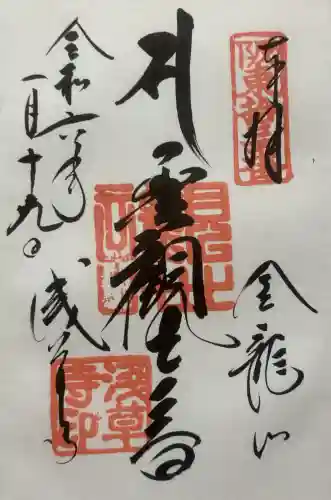 奉拝
金龍山
聖観世音
令和六年
一月十九日
浅草寺
浅草寺印